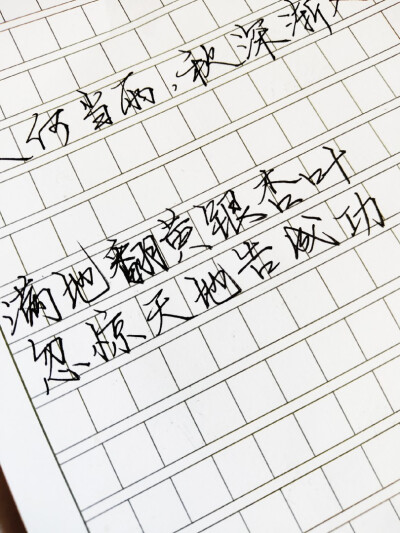 何当雨,秋深渐
满地翻黄银杏叶
忽惊天地告成功